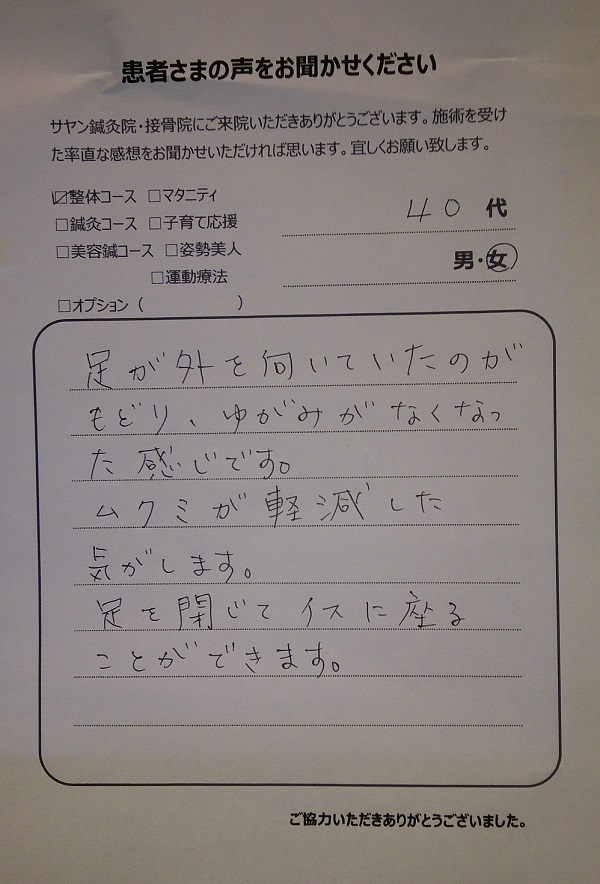 患者さまの声をお聞かせください
サヤン鍼灸院・接骨院にご来院いただきありがとうございます。施術を受け
た率直な感想をお聞かせいただければ思います。宜しくお願い致します。
☑整体コース □マタニティ
□鍼灸コース □子育て応援
40 代
□美容鍼コース □姿勢美人
男・女
□運動療法
□オプション（ ）
足が外を向いていたのが
もどり、ゆがみがなくなっ
た感じです。
ムクミが軽減した
気がします。
足を閉じてイスに座る
ことができます。
ご協力いただきありがとうございました。